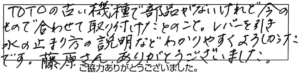 TOTOの古い機種で部品がないけれど今の
もので合わせて取り付けたとのこと。レバーを引き
水の止まり方の説明などわかりやすくよ
です。藤原さん、ありがとうございました。
ご協力ありがとうございました。